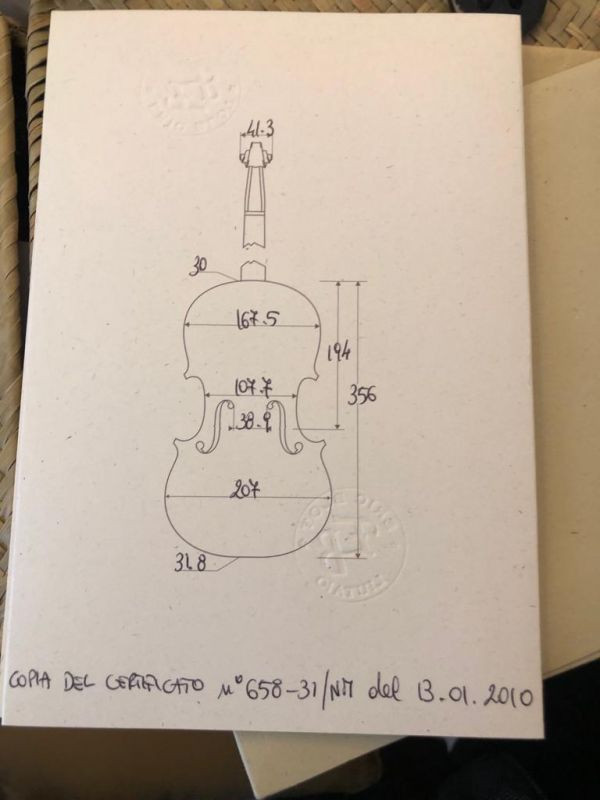 41.3
30
167.5
194
107.7
356
38.9
207
31.8
LIUTAIO
COPIA DEL CERTIFICATO N° 658-31/NM del 13.01.2010